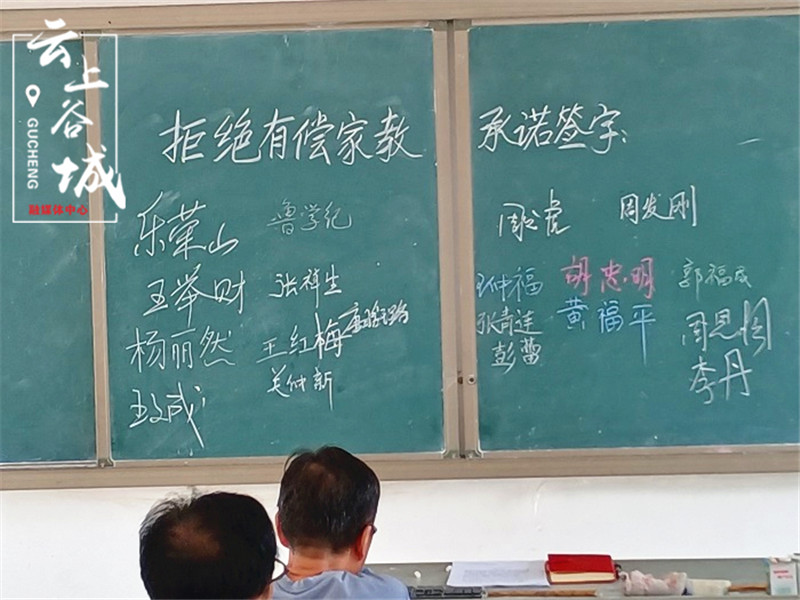 云上谷城
GUCHENG
融媒体中心
拒绝有偿家教 承诺签字:
乐荣山 鲁学纪
王举财 张祥生
杨丽然 王红梅
关仲新
周发刚
胡忠明 郭福成
张青莲 黄福平
彭蕾
周恩周
李丹